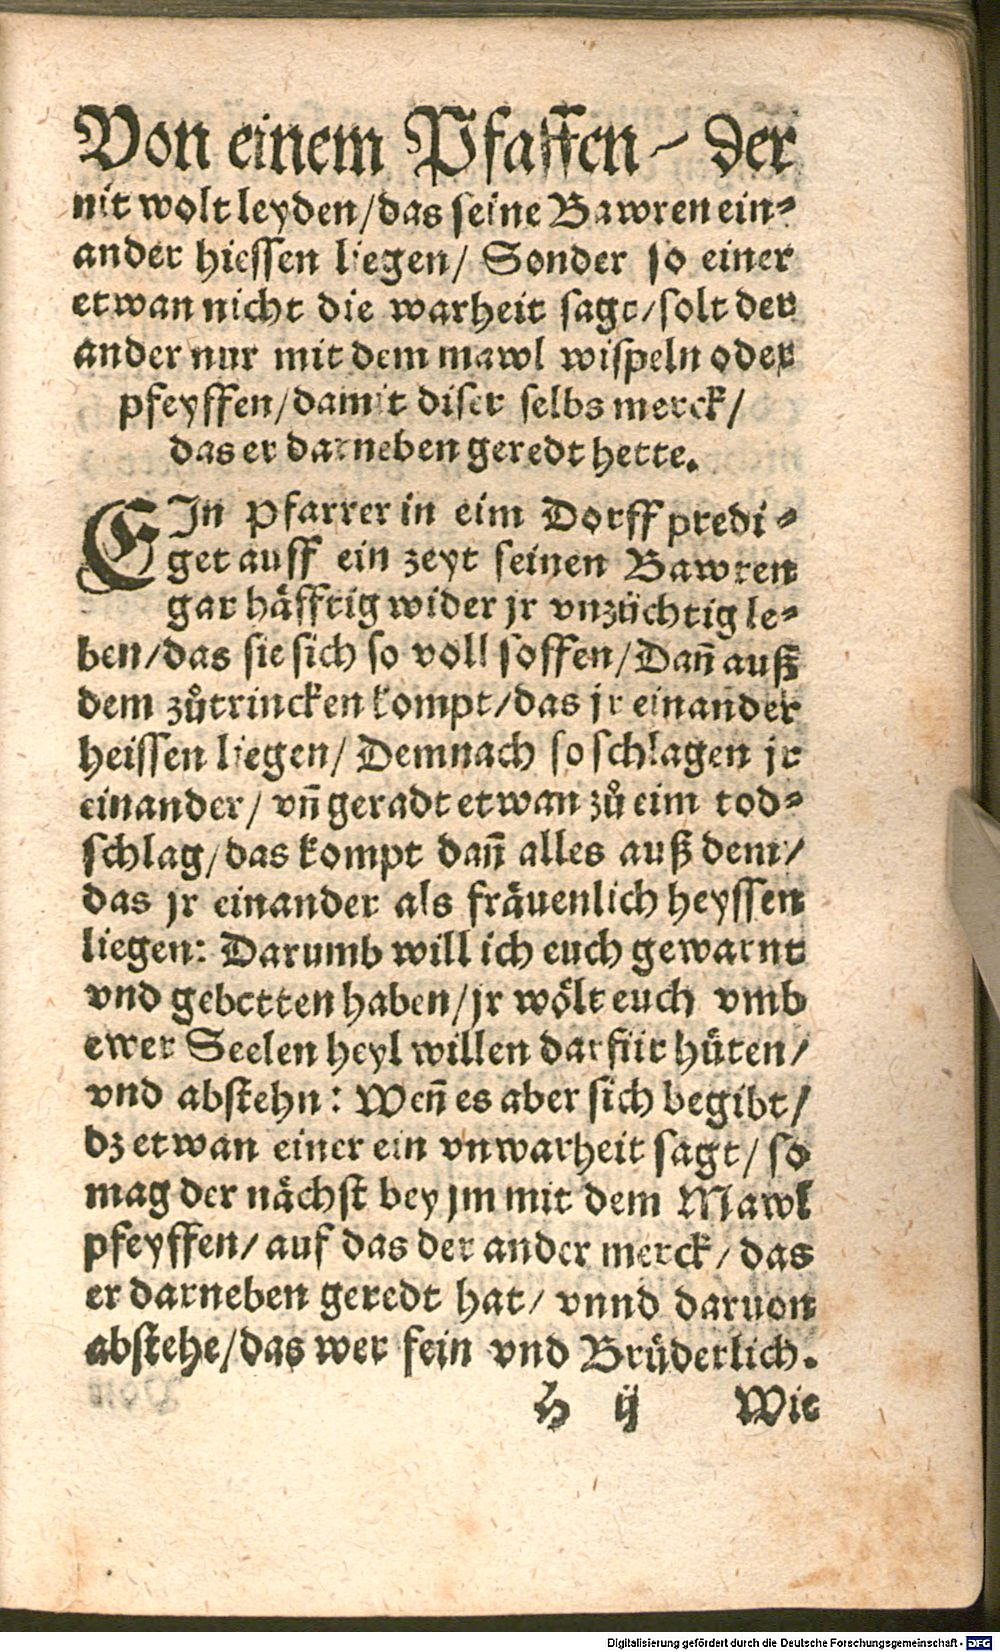 Von einem Pfaffen / der
nit wolt leyden / das seine Bawren ein⸗
ander hiessen liegen / Sonder so einer
etwan nicht die warheit sagt / solt der
ander nur mit dem mawl wispeln oder
pfeyffen / damit diser selbs merck /
das er darneben geredt hette.
EIn Pfarrer in eim Dorff predi⸗
get auff ein zeyt seinen Bawren
gar häfftig wider jr vnzüchtig le⸗
ben / das sie sich so voll soffen / Dañ auß
dem zůtrincken kompt / das jr einander
heissen liegen / Demnach so schlagen jr
einander / vñ geradt etwan zů eim tod⸗
schlag / das kompt dañ alles auß dem /
das jr einander als fräuenlich heyssen
liegen: Darumb will ich euch gewarnt
vnd gebetten haben / jr wölt euch vmb
ewer Seelen heyl willen darfür hüten /
vnd abstehn: Weñ es aber sich begibt /
dz etwan einer ein vnwarheit sagt / so
mag der nächst bey jm mit dem Mawl
pfeyffen / auf das der ander merck / das
er darneben geredt hat / vnnd daruon
abstehe / das wer fein vnd Brüderlich.
H ij Wie
Digitalisierung gefördert durch die Deutsche Forschungsgemeinschaft - DFG